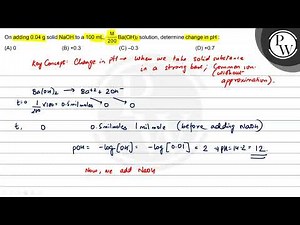 On adding 0.04 g solid NaOH to a 100 mL, M/200 Ba(OH)₂ solution, determine change in pH :
(A) 0 (B) +0.3 (C) –0.3 (D) +0.7
Key Concept: Change in pH → When we take solid substance
in a strong base; Common ion
(without
approximation).
Ba(OH)₂ → Ba²⁺ + 2OH⁻
t=0 1/200 × 100 = 0.5 milimoles 0 0
t, 0 0.5 milimoles 1 milimole (before adding NaOH)
pOH = -log[OH⁻] = -log[0.01] = 2 → pH = 14-2 = 12
Now, we add NaOH